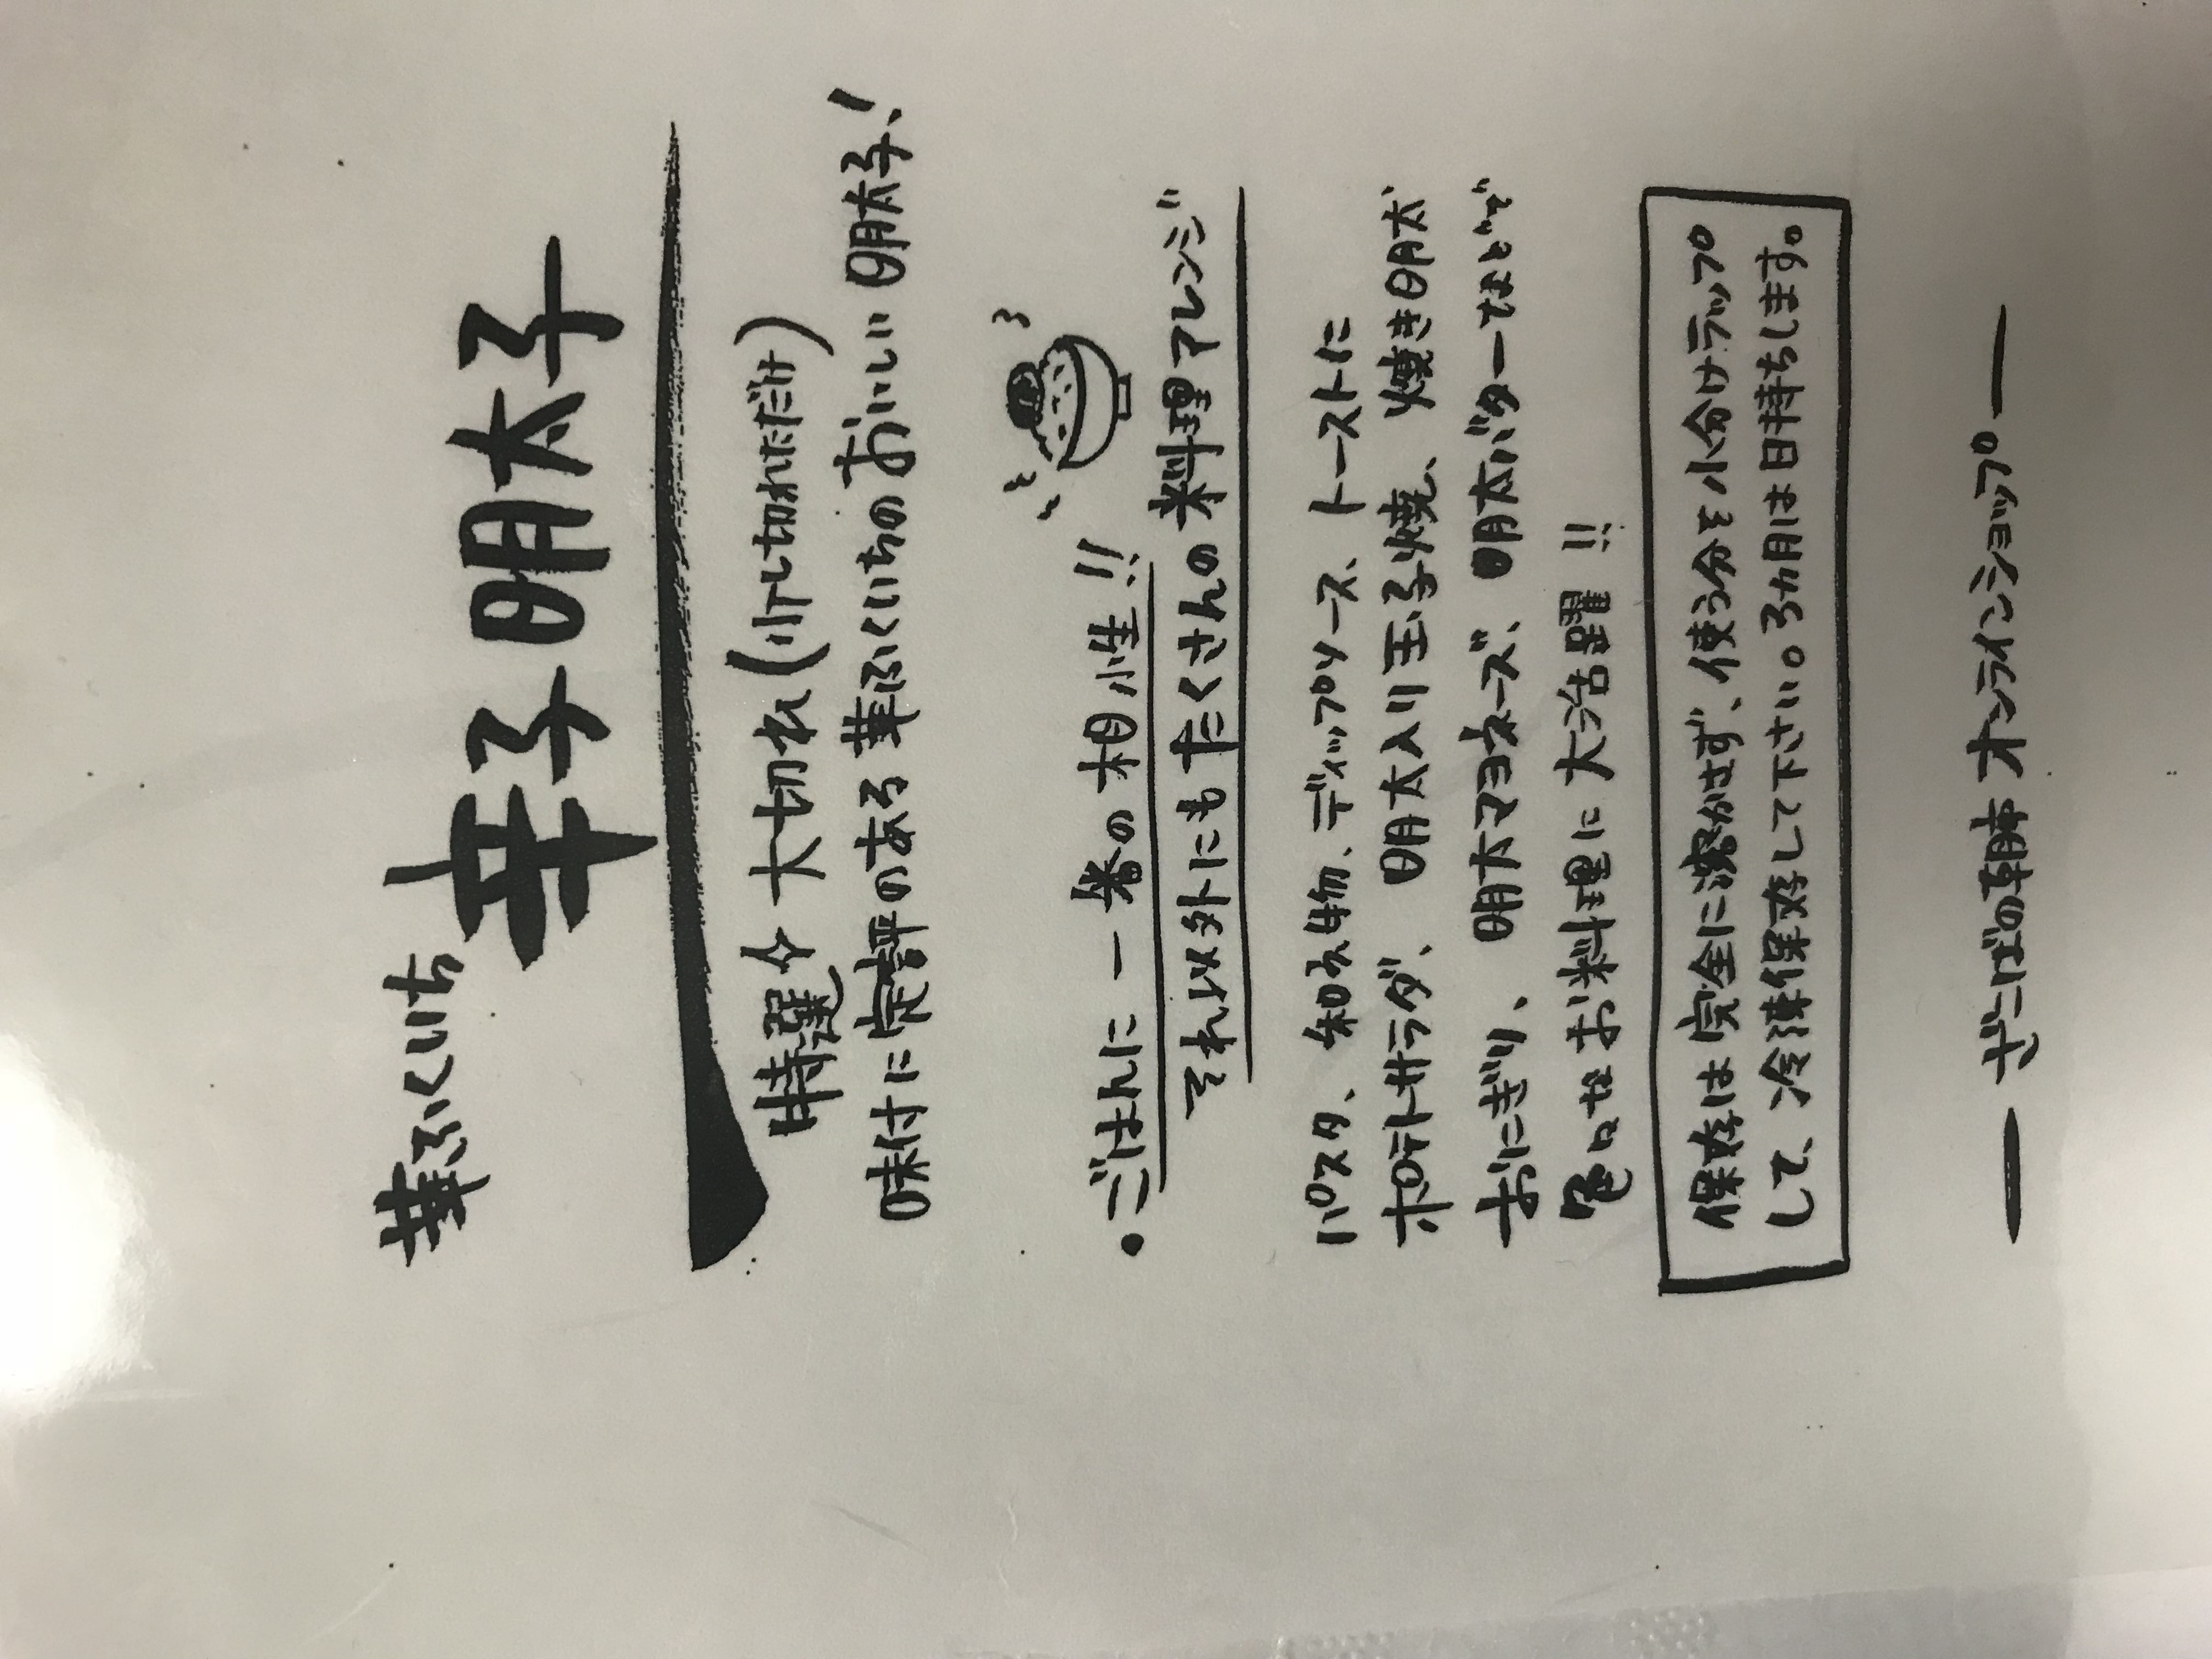 華ふくいち
辛子明太子
特選☆大切れ(少し切れただけ)
味付に定評のある華ふくいちのおいしい明太子!
・ごはんに一番の相性!!
それ以外にもたくさんの料理アレンジ
パスタ、和え物、ディップソース、トーストに
ポテトサラダ、明太入り玉子焼、焼き明太、
おにぎり、明太マヨネーズ、明太バターなどで
色々なお料理に大活躍!!
保存は完全に溶かさず、使う分を小分けラップ
して、冷凍保存して下さい。3ヵ月は日持ちします。
ざこばの朝市オンラインショップ